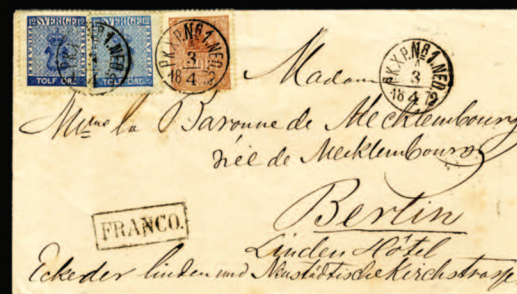 12 SVERIGE 12 SVERIGE 12
TOLF ÖRE. TOLF ÖRE.
PKXP.Nº1.NED
3
18 4 72
PKXP.Nº1.NED
3
18 4 72
Madame
Mme la Baronne de Mecklembourg
née de Mecklembourg
Berlin
Linden Hôtel
FRANCO.
Ecke der Linden und Neustädtische Kirchstrasse